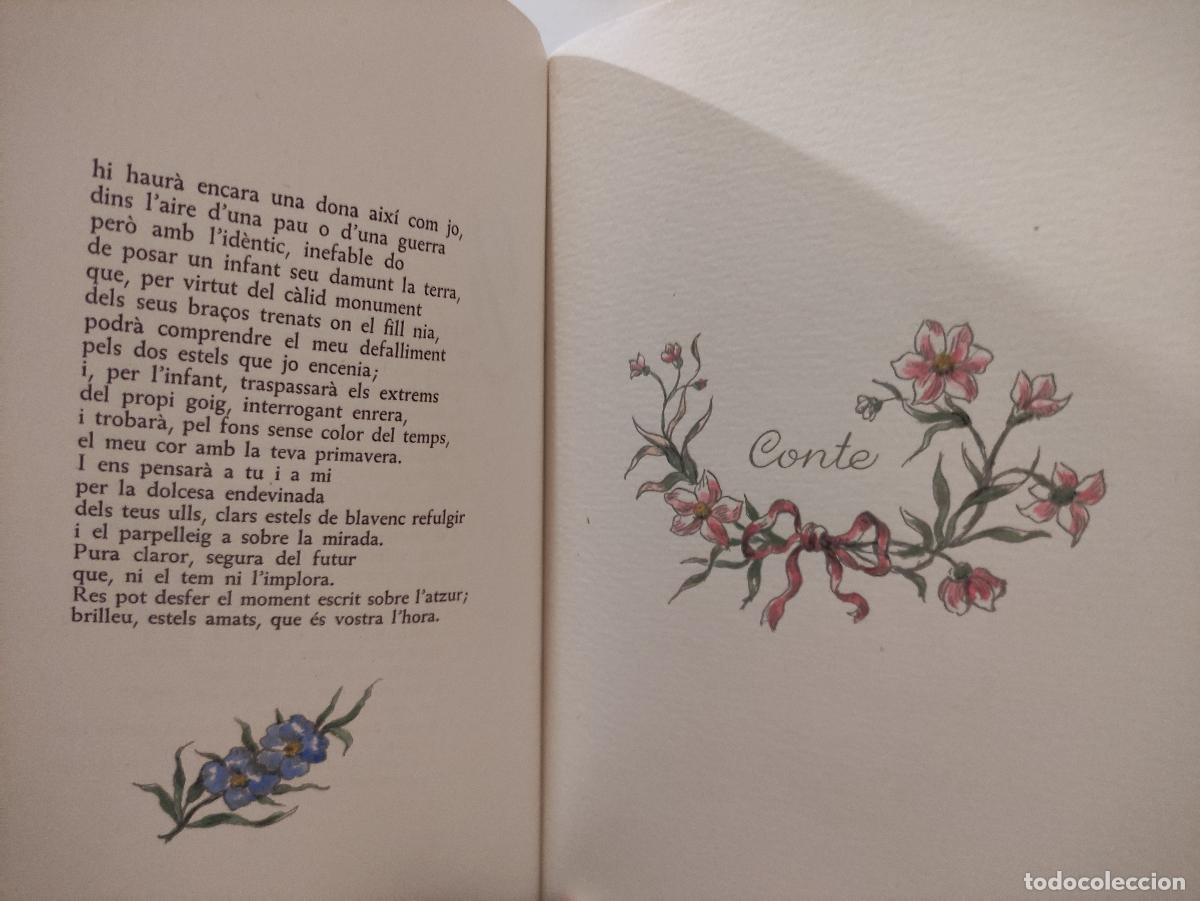 hi haurà encara una dona així com jo,
dins l'aire d'una pau o d'una guerra
però amb l'idèntic, inefable do
de posar un infant seu damunt la terra,
que, per virtut del càlid monument
dels seus braços trenats on el fill nia,
podrà comprendre el meu defalliment
pels dos estels que jo encenia;
i, per l'infant, traspassarà els extrems
del propi goig, interrogant enrera,
i trobarà, pel fons sense color del temps,
el meu cor amb la teva primavera.
I ens pensarà a tu i a mi
per la dolcesa endevinada
dels teus ulls, clars estels de blavenc refulgir
i el parpelleig a sobre la mirada.
Pura claror, segura del futur
que, ni el tem ni l'implora.
Res pot desfer el moment escrit sobre l'atzur;
brilleu, estels amats, que és vostra l'hora.
Conte
todocoleccion